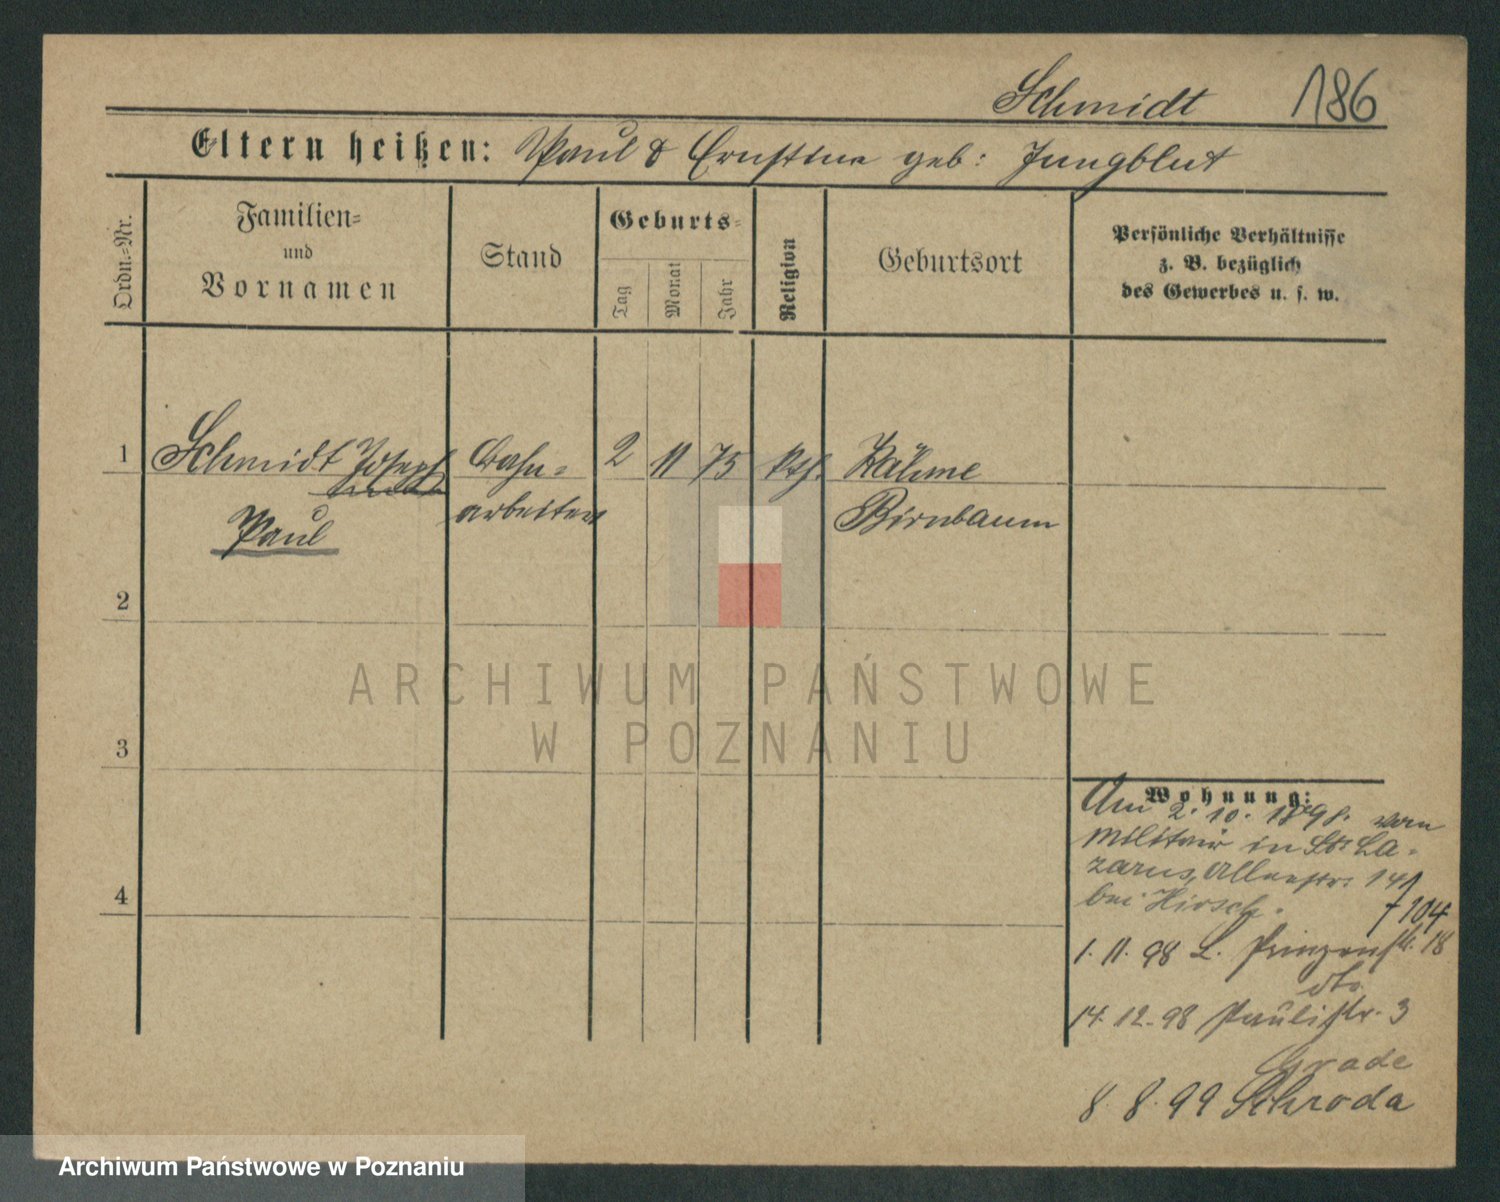 Schmidt 186
Eltern heißen: Paul & Ernstine geb: Jungblut
Ordn.=Nr.
Familien=
und
Vornamen
Stand
Geburts=
Tag
Monat
Jahr
Religion
Geburtsort
Persönliche Verhältnisse
z. B. bezüglich
des Gewerbes u. s. w.
1 Schmidt Joseph Bahn= 2 11 75 kth. Kähme
Paul arbeiter Birnbaum
2
3
4
ARCHIWUM PAŃSTWOWE
W POZNANIU
Wohnung:
Am 2. 10. 1898. vom
Militair in St. La-
zarus, 141
bei Hirsch. 104
1. 11. 98 L. Prinzenstr. 18
dto
14. 12. 98 Paulistr. 3
Grade
8. 8. 99 Schroda
Archiwum Państwowe w Poznaniu